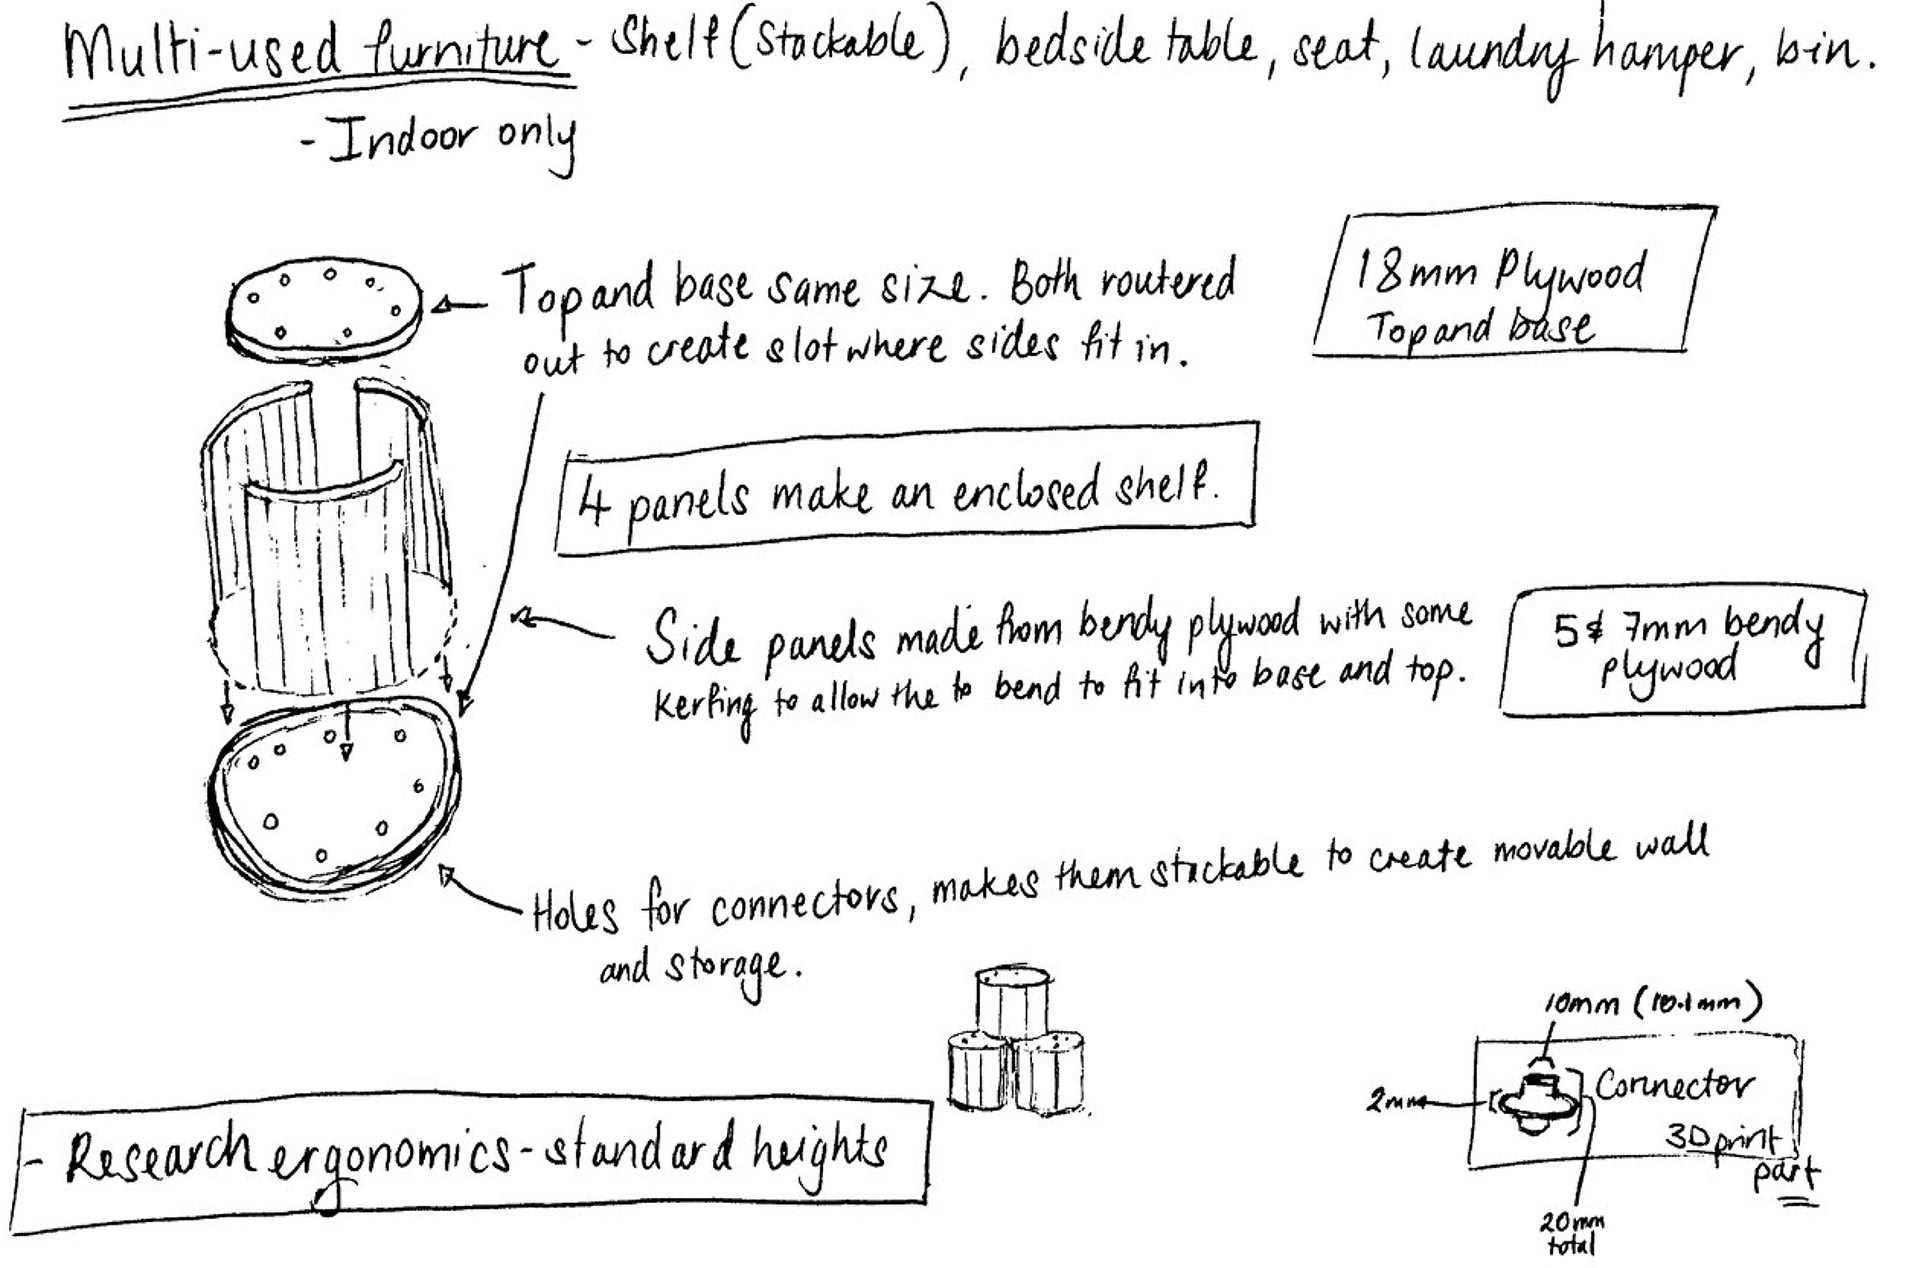 Multi-used furniture - Shelf (Stackable), bedside table, seat, laundry hamper, bin.
- Indoor only
Top and base same size. Both routered
out to create slot where sides fit in.
18mm Plywood
Top and base
4 panels make an enclosed shelf.
Side panels made from bendy plywood with some
kerfing to allow the to bend to fit into base and top.
5 & 7mm bendy
plywood
Holes for connectors, makes them stackable to create movable wall
and storage.
10mm (10.1mm)
2mm
Connector
3D print
part
20mm
total
- Research ergonomics - standard heights